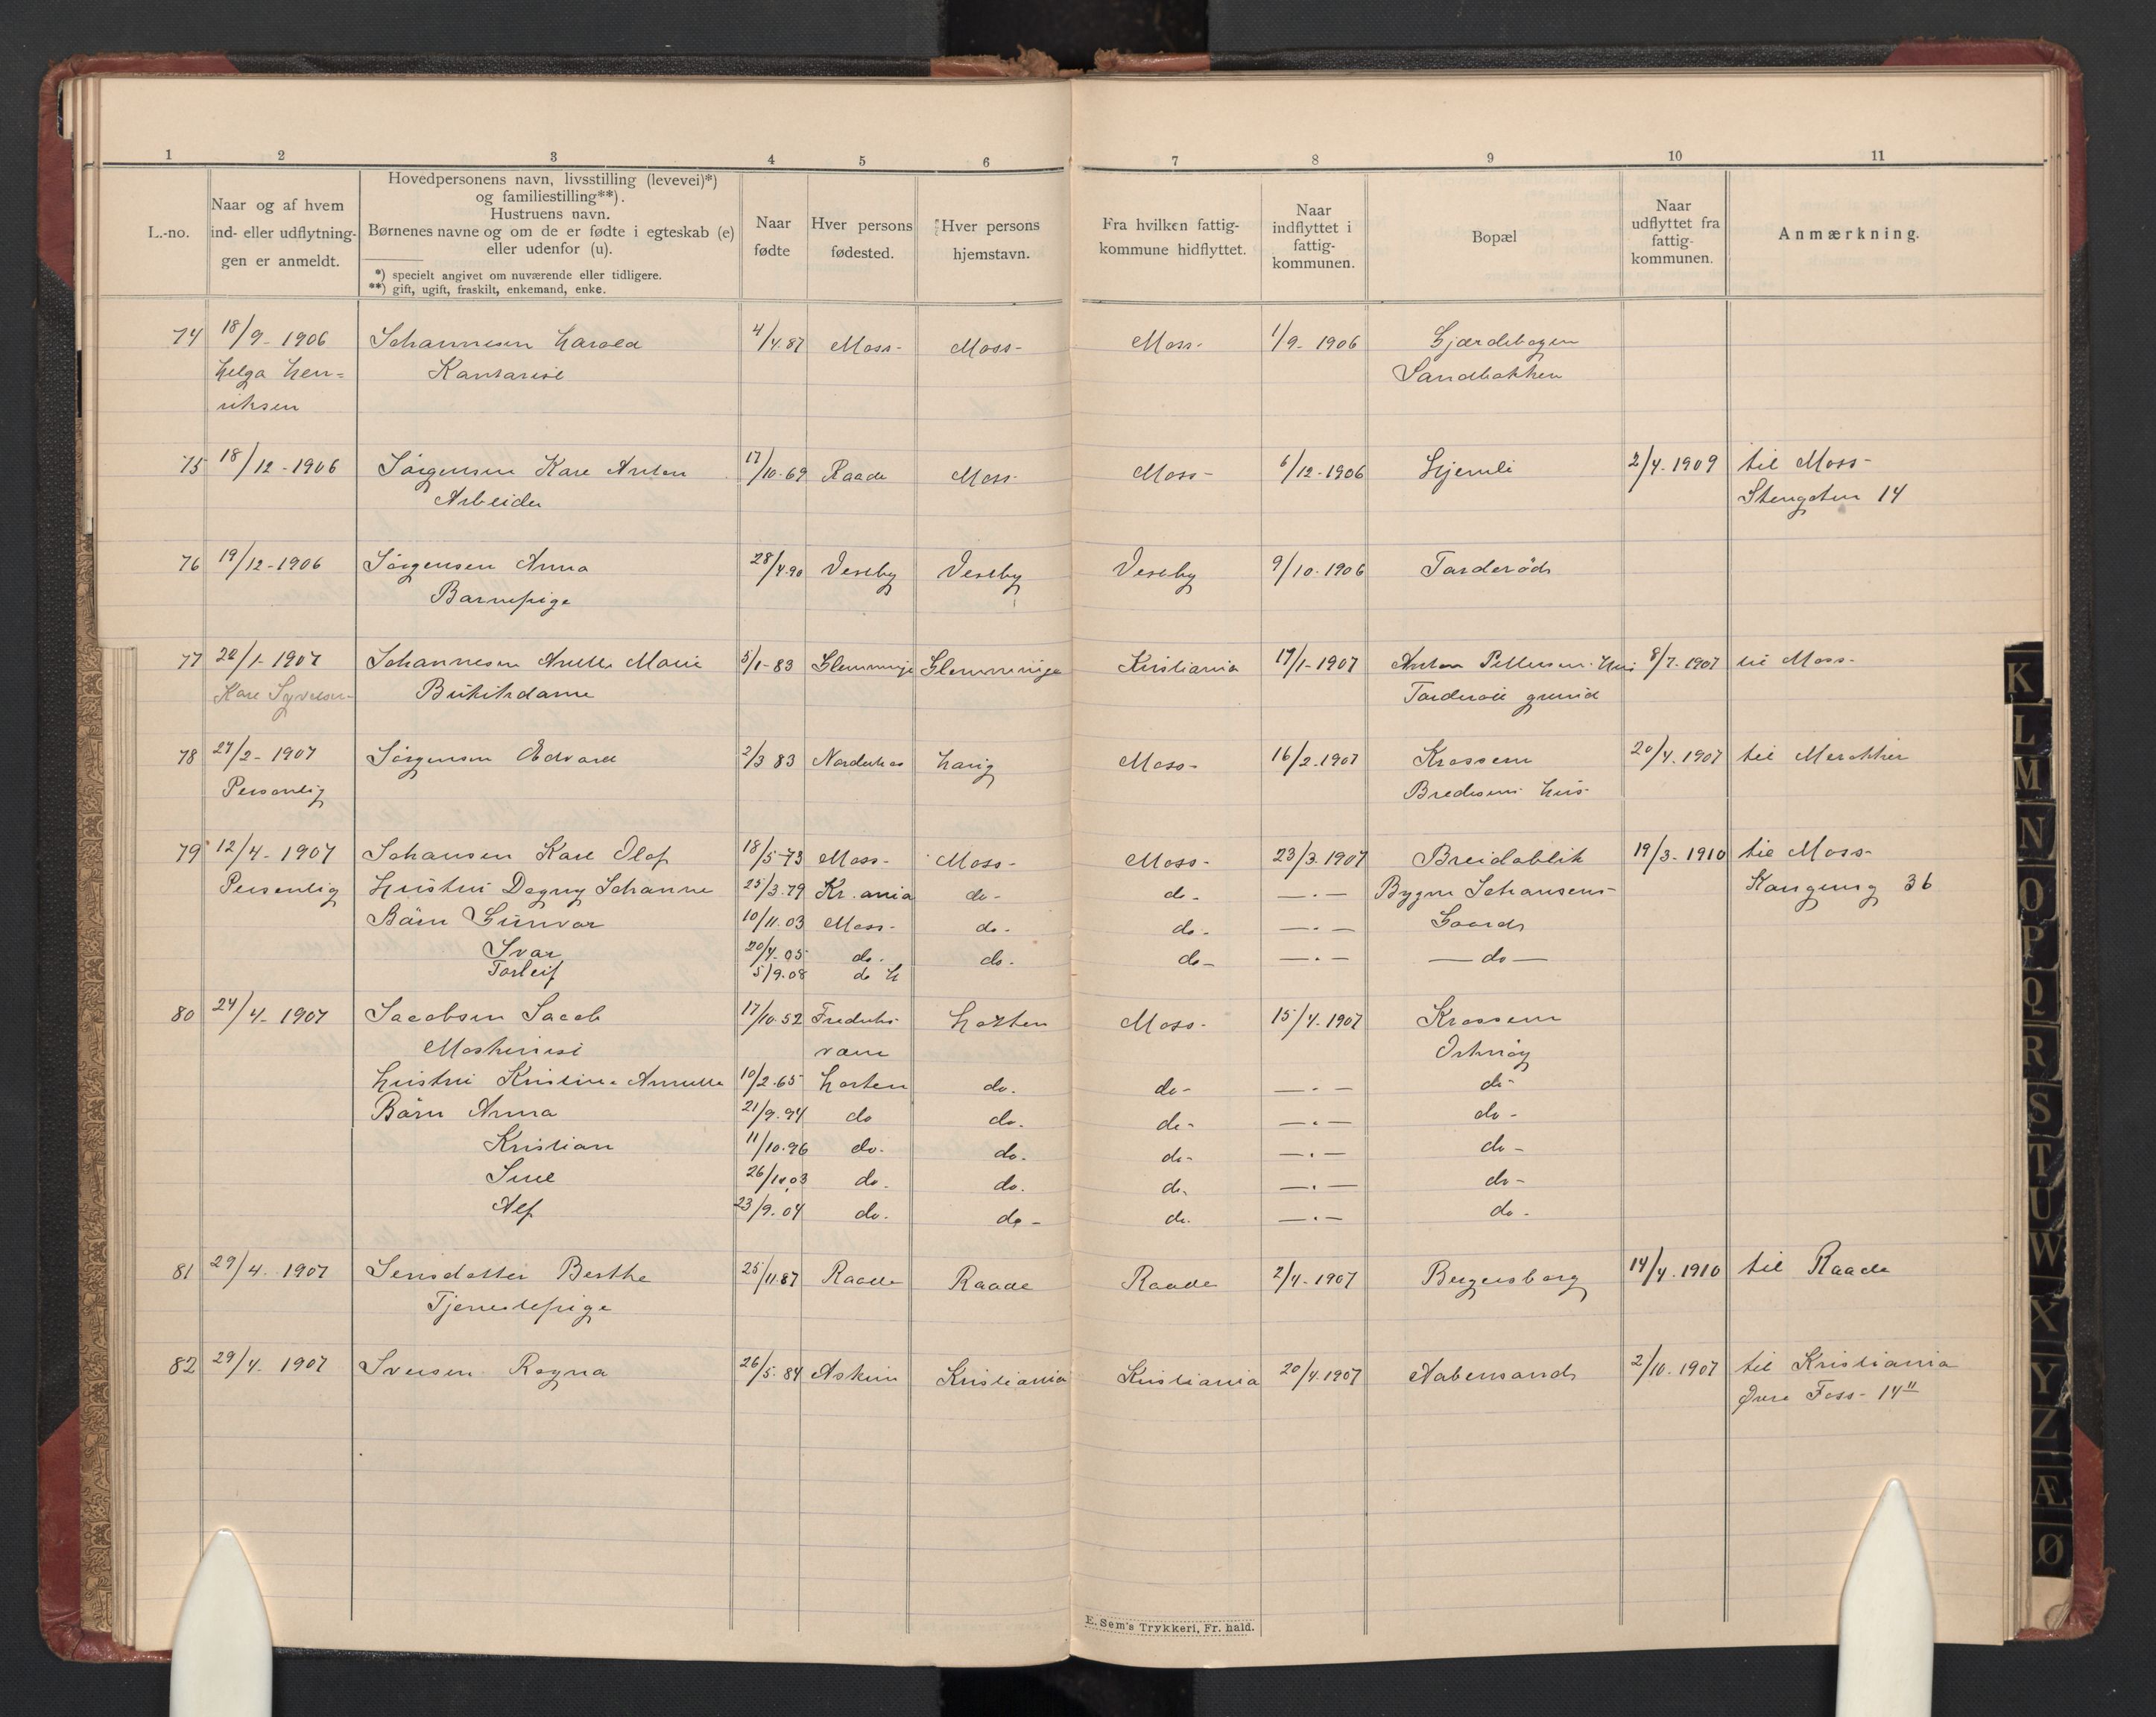 1 2 3 4 5 6 7 8 9 10 11
L.-no.
Naar og af hvem
ind- eller udflytnin-
gen er anmeldt.
Hovedpersonens navn, livsstilling (levevei)*)
og familiestilling**).
Hustruens navn.
Børnenes navne og om de er fødte i egteskab (e)
eller udenfor (u).
*) specielt angivet om nuværende eller tidligere.
**) gift, ugift, fraskilt, enkemand, enke.
Naar
fødte
Hver persons
fødested.
Hver persons
hjemstavn.
Fra hvilken fattig-
kommune hidflyttet.
Naar
indflyttet i
fattig-
kommunen.
Bopæl
Naar
udflyttet fra
fattig-
kommunen.
Anmærkning.
74 18/9- 1906 Johannesen Harald 4/4.87 Moss- Moss- Moss- 1/9- 1906 Gjærdebogen
Helga Hen= Kontorist Sandbakken
riksen
75 18/12-1906 Jörgensen Karl Anton 17/10-69 Raade Moss- Moss- 6/12-1906 Hjemli 2/4.1909 til Moss-
Arbeider Stengaten 14
76 19/12-1906 Jörgensen Anna 28/4.90 Vestby Vestby Vestby 9/10-1906 Tarderöd
Barnepige
77 20/1-1907 Johannesen Arulle Marie 5/1-83 Glemminge Glemminge Kristiania 17/1-1907 Anton Pettersens Hus 8/7.1907 til Moss-
Karl Syversen Butikdame Tarderöd grund
78 27/2-1907 Jörgensen Edvard 2/3 83 Norderhov Moss- 16/2.1907 Krossern 20/4.1907 til Merakker
Personlig Bredesens Hus
79 12/4-1907 Johansen Karl Olaf 18/5-73 Moss- Moss- Moss- 23/3.1907 Breidablik 19/3-1910 til Moss-
Personlig Hustru Dagny Johanne 25/3.79 Kr.ania do- do- —.— Bygm Johansens Kongensg 36
Börn Gunvor 10/11.03 Moss- do- do- —.— Gaard
Ivar 20/4.05 do. do. do- —.— —do—
Torleif 5/9.08 do H
80 24/4-1907 Jacobsen Jacob 17/10.52 Frederiks- Horten Moss- 15/4.1907 Krossern
Maskinist værn Orknöy
Hustru Kristine Annette 10/2.65 Horten do. do- —.— do-
Börn Anna 21/9.94 do do. do- —.— do-
Kristian 11/10.96 do. do. do- —.— do-
26/10.03 do. do. do. —.— do-
Alf 23/9.04 do. do- do. —.— do-
81 29/4.1907 Jensdatter Berthe 25/11.87 Raade Raade Raade 2/4-1907 Bergersborg 14/4.1910 til Raade
Tjenestepige
82 29/4.1907 Iversen Ragna 26/5.84 Askim Kristiania Kristiania 20/4.1907 Aabensand 2/10.1907 til Kristiania
Övre Foss- 14"
E. Sem's Trykkeri, Fr. hald.
K
L
M
N
O
P
Q
R
S
T
U
W
X
Y
Z
Æ
Ø